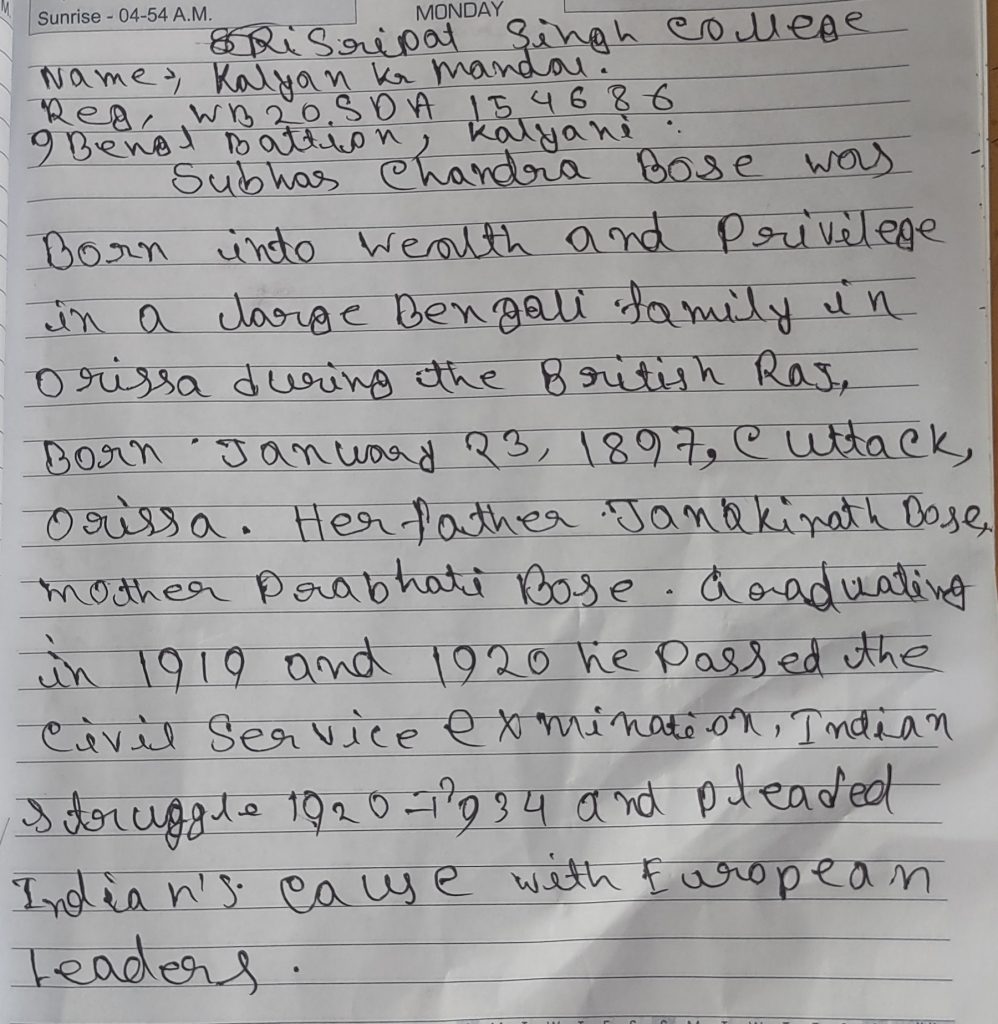 Sunrise - 04-54 A.M.
MONDAY
SRi Sripat Singh College
Name:, Kalyan kr mandal.
Reg, WB20.SDA 154686
9 Bengl Battion, Kalyani.
Subhas Chandra Bose was
Born into wealth and Privilege
in a large Bengali family in
Orissa during the British Raj,
Born January 23, 1897, Cuttack,
Orissa. Her father Janakinath Bose,
mother Prabhati Bose. Graduating
in 1919 and 1920 he Passed the
Civil Service exmination, Indian
struggle 1920-1934 and pleaded
Indian's cause with European
Leaders.